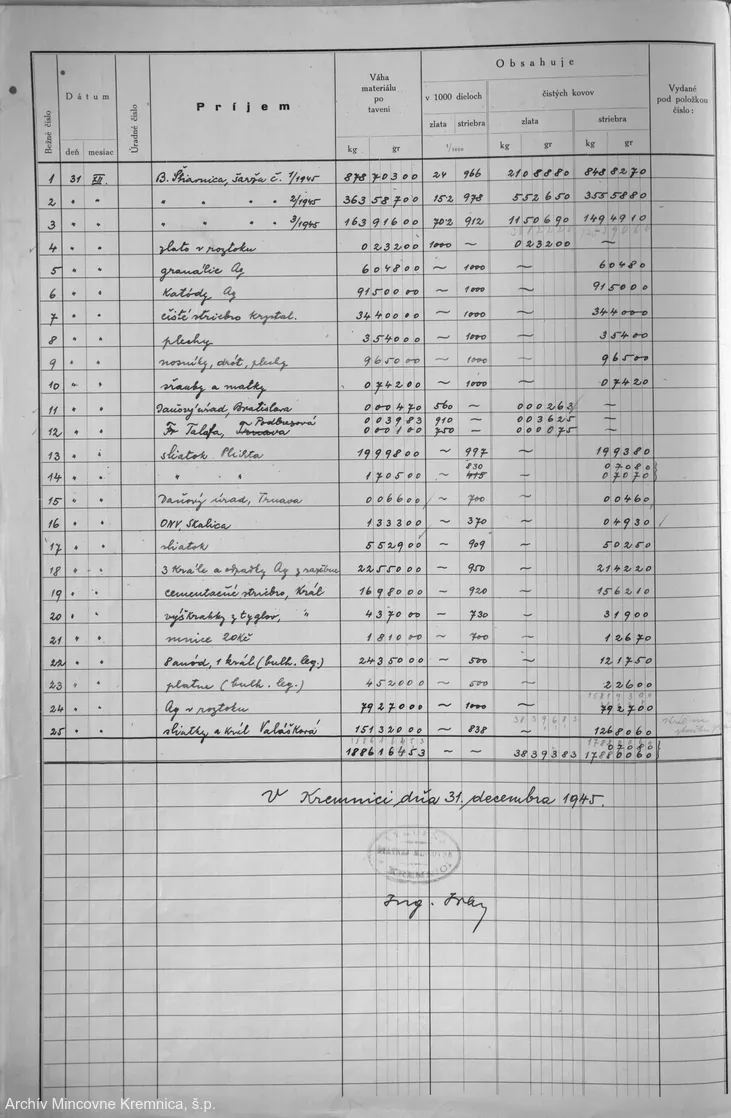 Bežné číslo
Dátum
deň mesiac
Úradné číslo
Príjem
Váha materiálu po tavení
kg gr
Obsahuje
v 1000 dieloch čistých kovov
zlata striebra zlata striebra
1/1000 kg gr kg gr
Vydané pod položkou číslo:
1 31 XII. B. Štiavnica, šarža č. 1/1945 878 70300 24 966 21 08880 848 8270
2 " " " " " " 2/1945 363 58700 152 978 55 2650 355 5880
3 " " " " " 3/1945 163 91600 702 912 115 0690 149 4910
4 " " zlato v roztoku 0 23200 1000 ~ 0 23200 ~
5 " " granálie Ag 6 04800 ~ 1000 ~ 6 0480
6 " " Katódy Ag 91 5000 ~ 1000 ~ 91 5000
7 " " čisté striebro krystal. 34 4000 ~ 1000 ~ 34 4000
8 " " plechy 3 54000 ~ 1000 ~ 3 5400
9 " " nosníky, drót, plechy 9 65000 ~ 1000 ~ 9 6500
10 " " šraby a matky 0 74200 ~ 1000 ~ 0 7420
11 " " Daňový úrad, Bratislava 0 00470 560 ~ 0 00263 ~
12 " " Fr. Talafa, Trnava Podbrezová 0 03983 910 ~ 0 03625 ~
0 00100 750 ~ 0 00075 ~
13 " " sliatok Plichta 19 99800 ~ 997 ~ 19 9380
14 " " " " 1 70500 ~ 830 415 ~ 0 7080 0 7070
15 " " Daňový úrad, Trnava 0 06600 ~ 700 ~ 0 0460
16 " " ONV Skalica 1 33300 ~ 370 ~ 0 4930
17 " " sliatok 5 52900 ~ 909 ~ 5 0250
18 " " 3 Krále a odpadky Ag z razebne 22 55000 ~ 950 ~ 21 4220
19 " " cementačné striebro, Král 16 98000 ~ 920 ~ 15 6210
20 " " výškrabky z tyglov, " 4 37000 ~ 730 ~ 3 1900
21 " " mince 20Kč 1 81000 ~ 700 ~ 1 2670
22 " " 8 anód, 1 král (bulh. leg.) 243 5000 ~ 500 ~ 121 750
23 " " platne (bulh. leg.) 4 52000 ~ 500 ~ 2 2600
24 " " Ag v roztoku 79 27000 ~ 1000 ~ 79 2700
25 " " sliatky a král Valášková 151 32000 ~ 838 ~ 126 8060
0 7080
1886 16453 ~ ~ 38 39383 1788 0060
V Kremnici, dňa 31. decembra 1945.
KREMNICI
Ing.
Archív Mincovne Kremnica, š.p.